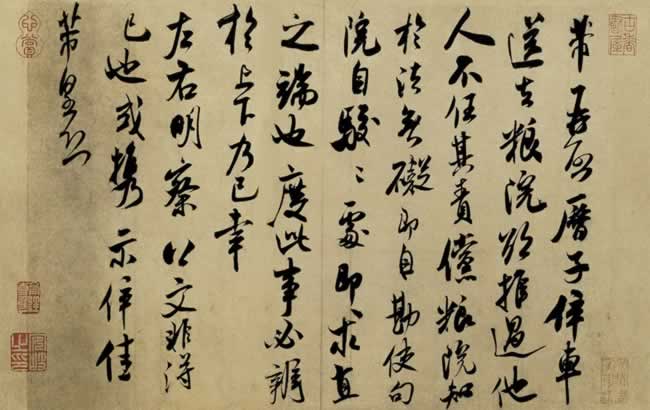 芾再啟曆子倅車
送去粮院欲推過他
人不任其責儻粮院知
於法無礙即自勘使句
院自駮〻處即求直
之端也度此事必辨
於上下乃已幸
左右明察以文非得
已也或攜示倅佳
芾皇恐